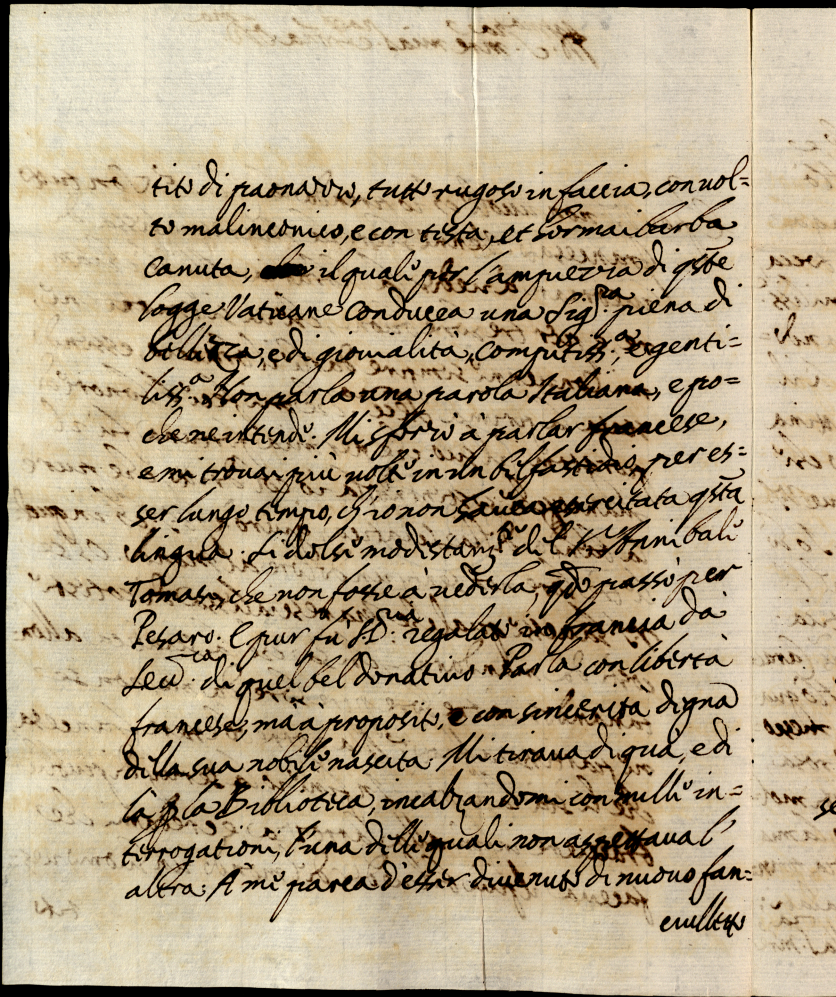 tito di paonazzo, tutto rugoso in faccia, con uol=
to malinconico, e con testa, et hormai barba
canuta, il quale per l'ampiezza di qste
logge Vaticane conducea una Sig.ra piena di
bellezza, e di giouialità, compitiss.a, e genti=
liss.a Non parla una parola Italiana, e po=
che ne intende. Mi sforzò à parlar francese,
e mi trouai più uolte in un bel fastidio, per es=
ser lungo tempo, ch'io non hauea esercitata qsta
lingua. Si dolse modestamte. del Annibale
Tomasi, che non fosse à uederla, qdo passò per
Pesaro. E pur fù regalato in Francia da
di quel bel donatiuo. Parla con libertà
francese, mà à proposito, e con sincerità digna
della sua nobile nascita. Mi tiraua di quà, e di
là p la Biblioteca, incalzandomi con mille in=
terrogationi, l'una delle quali non aspettaua l'
altra. A me parea d'esser diuenuto di nuouo fan=
ciulletto